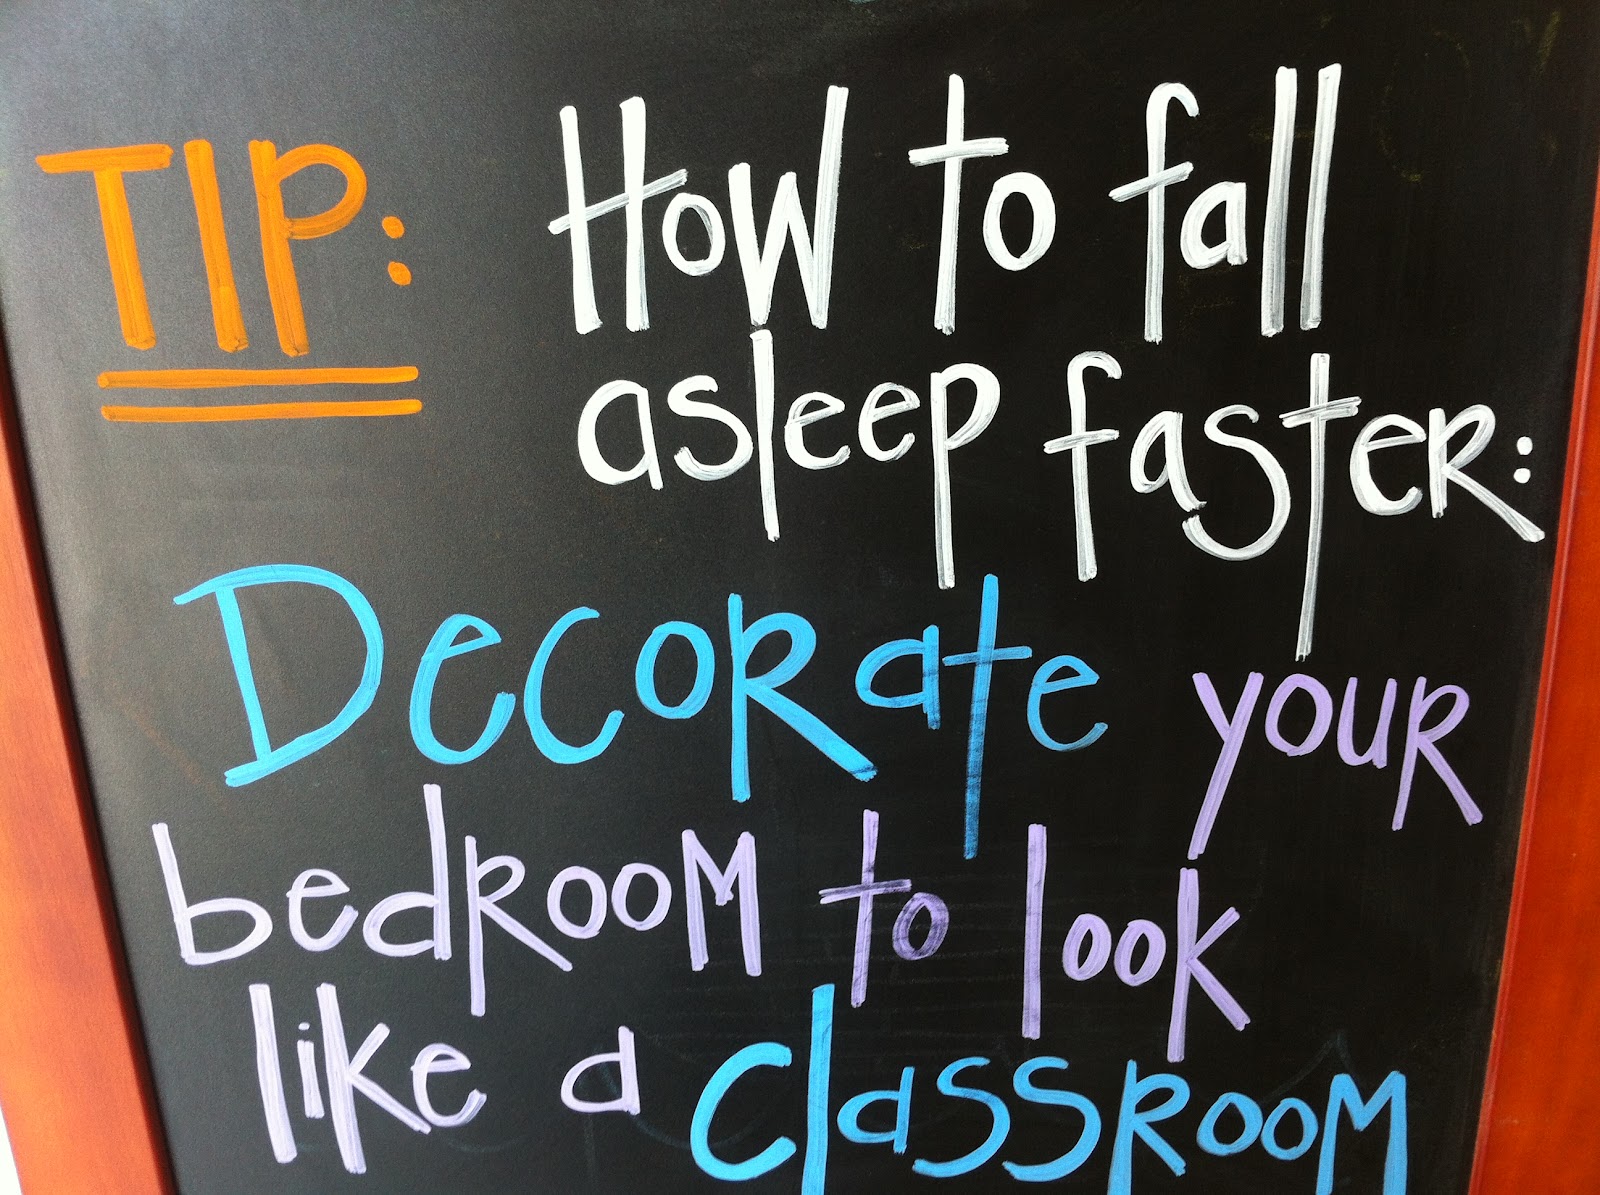 TIP: How to fall
asleep faster:
Decorate your
bedroom to look
like a classroom